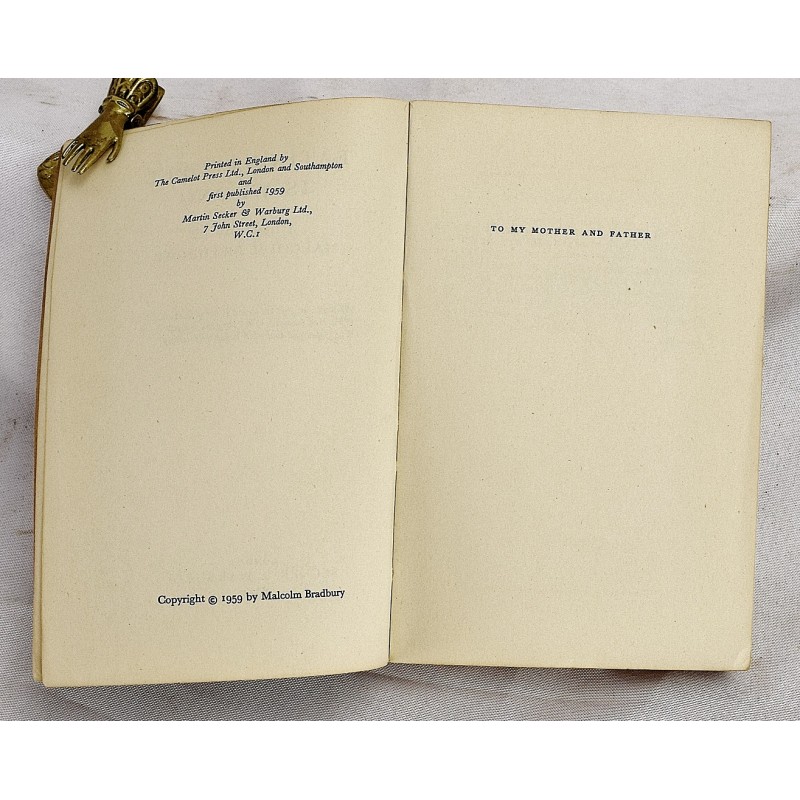 Printed in England by
The Camelot Press Ltd., London and Southampton
and
first published 1959
by
Martin Secker & Warburg Ltd.,
7 John Street, London,
W.C.1
Copyright © 1959 by Malcolm Bradbury
TO MY MOTHER AND FATHER